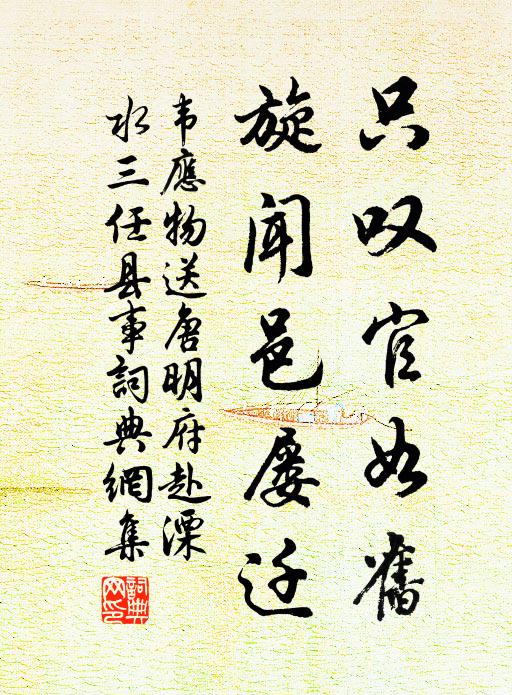 只叹官如舊
旋闻邑屡迁
韦應物送唐明府赴溧
水三任县事詞典網集
詞典網印